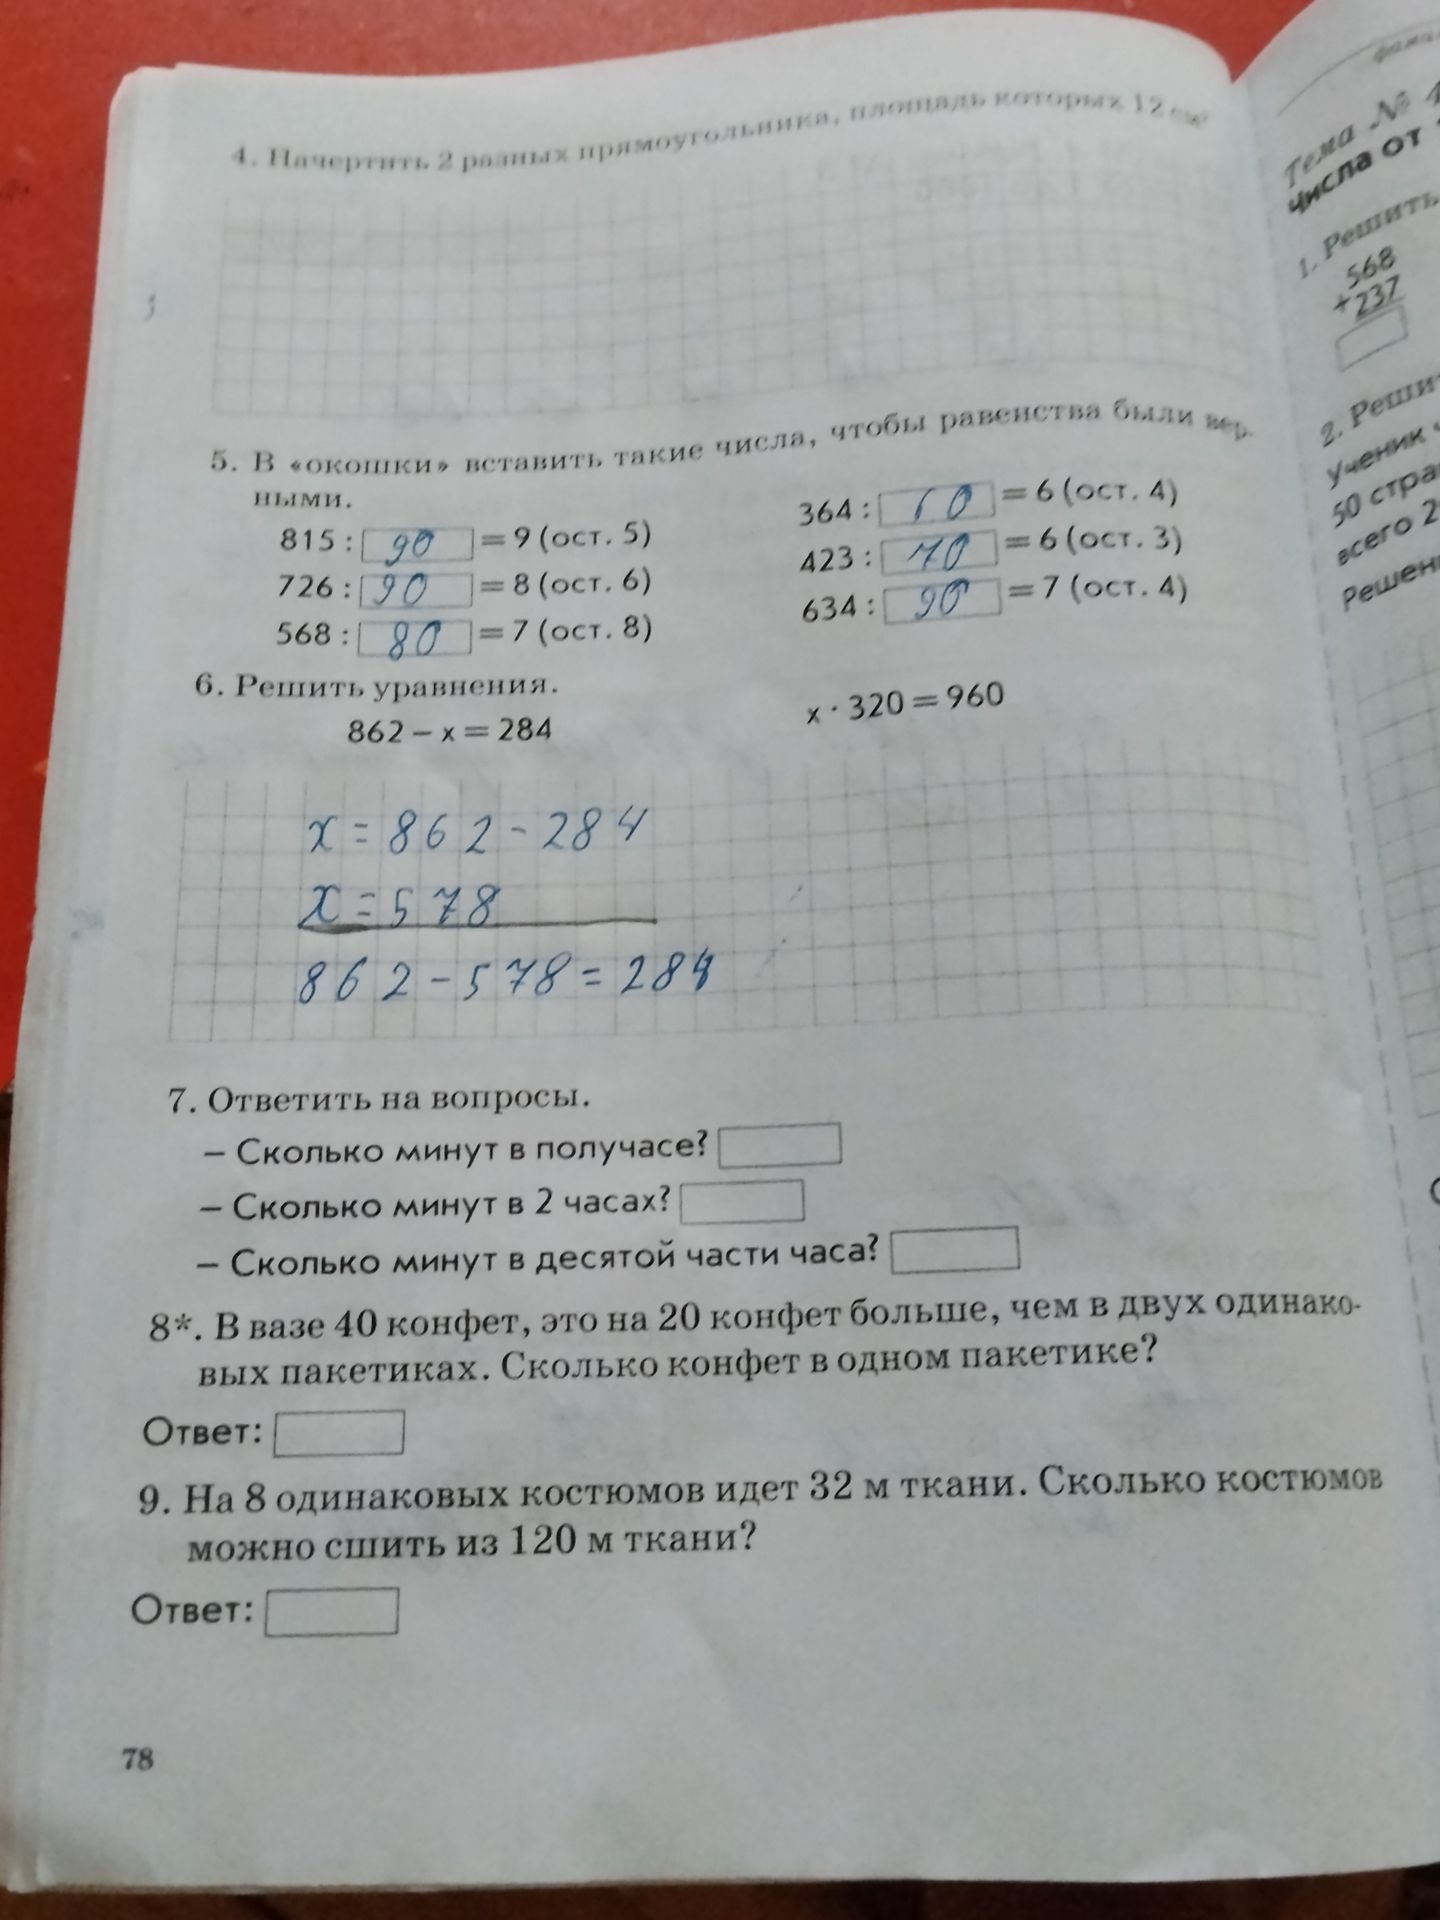 4. Начертить 2 разных прямоугольника, площадь которых 12 см²
5. В «окошки» вставить такие числа, чтобы равенства были вер-
ными.
815 : 90 = 9 (ост. 5)
364 : 60 = 6 (ост. 4)
726 : 90 = 8 (ост. 6)
423 : 70 = 6 (ост. 3)
568 : 80 = 7 (ост. 8)
634 : 90 = 7 (ост. 4)
6. Решить уравнения.
862 – x = 284
x · 320 = 960
x = 862 - 284
x = 578
862 - 578 = 284
7. Ответить на вопросы.
– Сколько минут в получасе?
– Сколько минут в 2 часах?
– Сколько минут в десятой части часа?
8*. В вазе 40 конфет, это на 20 конфет больше, чем в двух одинако-
вых пакетиках. Сколько конфет в одном пакетике?
Ответ:
9. На 8 одинаковых костюмов идет 32 м ткани. Сколько костюмов
можно сшить из 120 м ткани?
Ответ:
78
Тема № 4
числа от 1
1. Решить
568
+237
2. Решит
Ученик ч
50 стра
всего 2
Решени